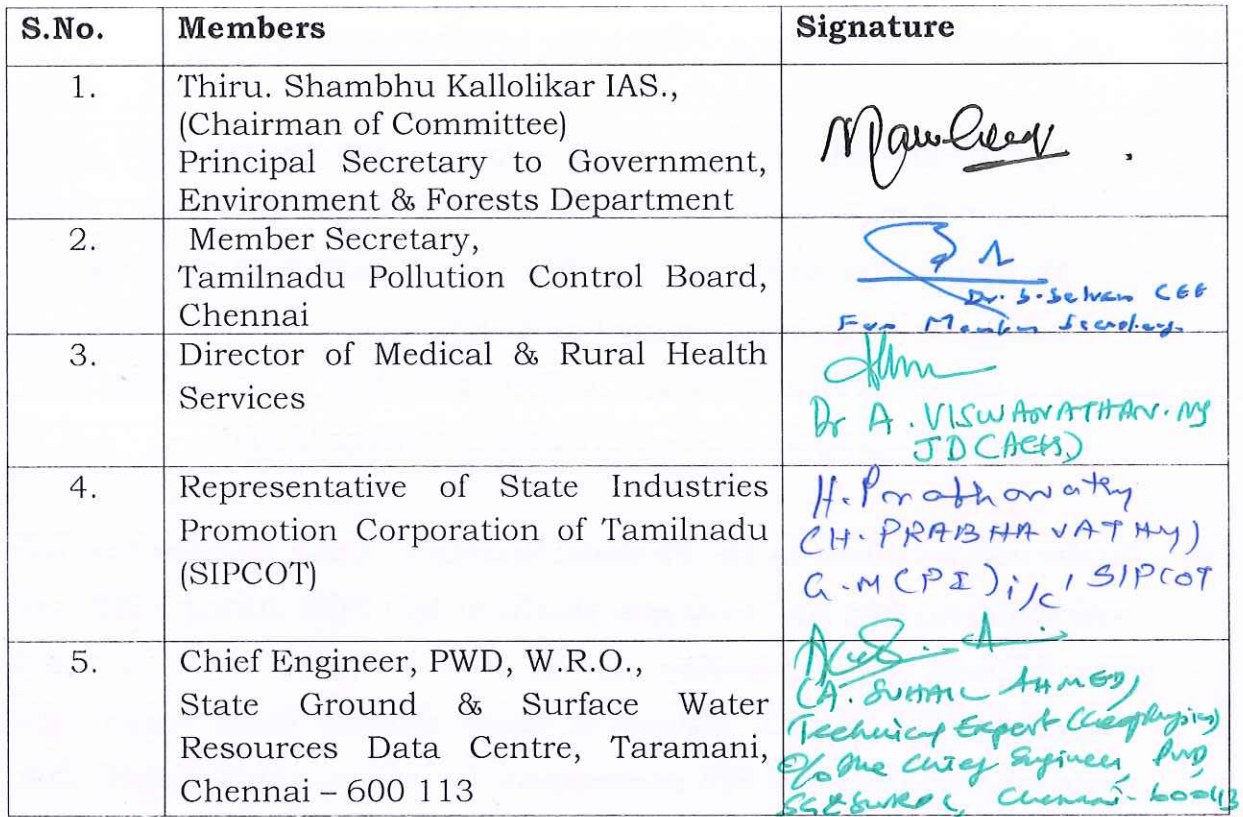 S.No. Members Signature
1. Thiru. Shambhu Kallolikar IAS.,
(Chairman of Committee)
Principal Secretary to Government,
Environment & Forests Department
2. Member Secretary,
Tamilnadu Pollution Control Board,
Chennai
Dr. S. Selvan CEE
For Member Secretary
3. Director of Medical & Rural Health
Services
Dr A. VISWANATHAN.
JD
4. Representative of State Industries
Promotion Corporation of Tamilnadu
(SIPCOT)
H. Prabhavathy
(H. PRABHAVATHY)
G.M (PI) i/c, SIPCOT
5. Chief Engineer, PWD, W.R.O.,
State Ground & Surface Water
Resources Data Centre, Taramani,
Chennai – 600 113
(A. SUHAIL AHMED)
Technical Expert (Geophysics)
O/o the Chief Engineer, PWD
SG&SWRDC, Chennai-600113